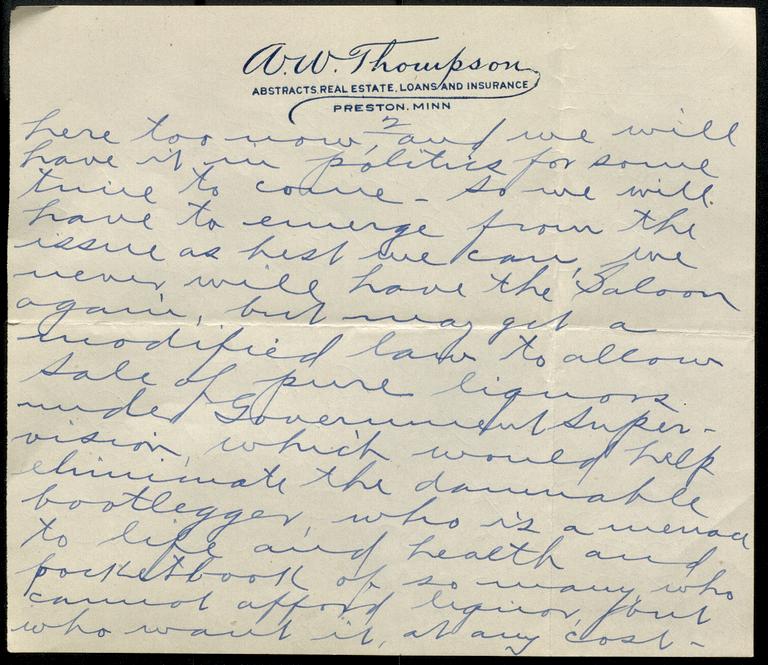 A.W. Thompson
ABSTRACTS, REAL ESTATE, LOANS AND INSURANCE
PRESTON, MINN
2
here too now, and we will
have it in politics for some
time to come - so we will
have to emerge from the
issue as best we can, we
never will have the Saloon
again, but may get a
modified law to allow
sale of pure liquors
under Government super-
vision, which would help
eliminate the damnable
bootlegger, who is a menace
to life and health and
pocketbook of so many, who
cannot afford liquor, but
who want it, at any cost -